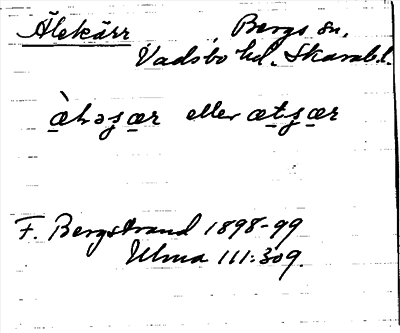 Älekärr Bergs sn.
Vadsbo hd. Skarab.l.
eller
F. Bergstrand 1898-99
Ulma 111:309.